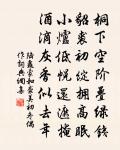 桐下空階疊綠錢
貂裘初綻擁高眠
小爐低幌還遮掩
酒滴灰香似去年
陸龜蒙和襲美初冬偶
作詞典網集